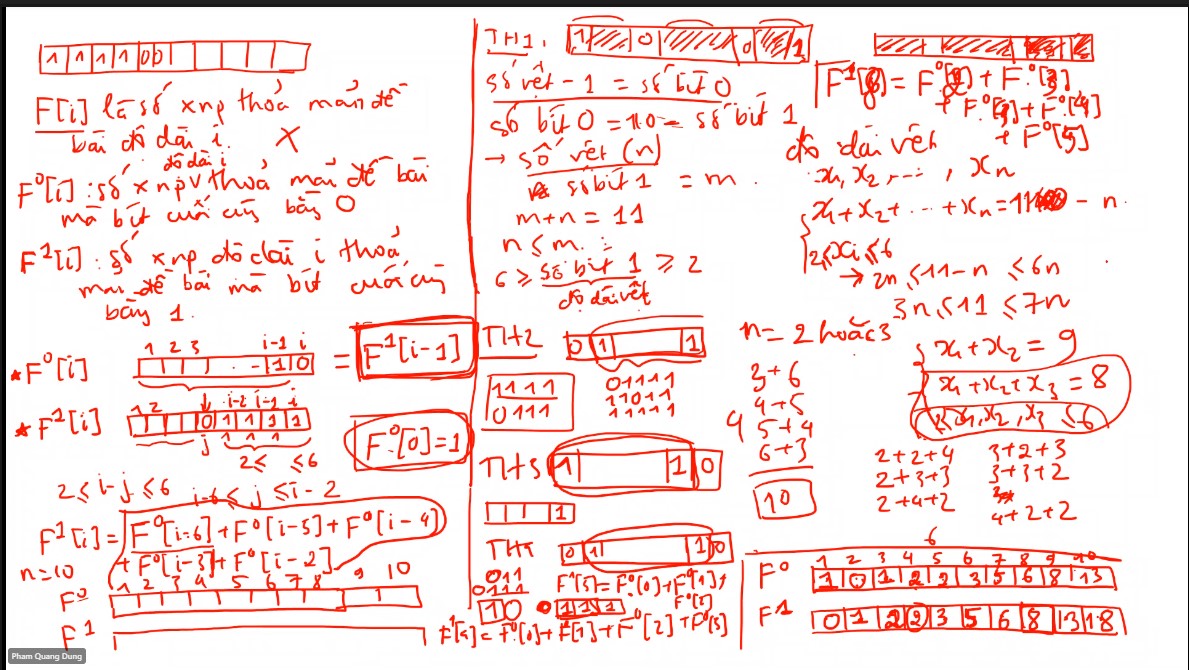 1 1 1 1 0 0
F[i] là số xnp thoả mãn đề
bài độ dài i. X
độ dài i
F⁰[i] : số xnp thoả mãn đề bài
mà bít cuối cùng bằng 0
F¹[i] : số xnp độ dài i thoả
mãn đề bài mà bít cuối cùng
bằng 1.
1 2 3 i-1 i
* F⁰[i] 1 0 = F¹[i-1]
1 2 i-2 i-1 i
* F¹[i] 0 1 1 1 1
j 1 1 1
2≤ ≤6
F⁰[0]=1
2 ≤ i-j ≤ 6
i-6 ≤ j ≤ i-2
F¹[i] = F⁰[i-6] + F⁰[i-5] + F⁰[i-4]
+ F⁰[i-3] + F⁰[i-2]
n=10
1 2 3 4 5 6 7 8 9 10
F⁰
F¹
TH1. 1 0 0 1
số vết - 1 = số bit 0
số bít 0 = 10 - số bít 1
→ số vết (n)
số bít 1 = m.
m+n = 11
n ≤ m.
6 ≥ số bít 1 ≥ 2
độ dài vết
TH2 0 1 1
1111
0111
01111
11011
11111
TH3 1 1 0
1
TH4 0 1 1 0
011
0111
10 0 1 1 1
F¹[5] = F⁰[0] + F⁰[1] +
F⁰[3]
F¹[4] = F⁰[0] + F⁰[1] + F⁰[2] + F⁰[3]
F¹[8] = F⁰[2] + F⁰[3]
+ F⁰[4]
+ F⁰[5]
độ dài vết
x₁, x₂, ..., xₙ
x₁ + x₂ + ... + xₙ = 11 - n.
2 ≤ xᵢ ≤ 6
→ 2n ≤ 11-n ≤ 6n
3n ≤ 11 ≤ 7n
n = 2 hoặc 3
x₁ + x₂ = 9
x₁ + x₂ + x₃ = 8
x₁, x₂, x₃ ≤ 6
3+6
4+5
4 5+4
6+3
10
2+2+4 3+2+3
2+3+3 3+3+2
2+4+2 4+2+2
6
1 2 3 4 5 6 7 8 9 10
F⁰ 1 0 1 2 2 3 5 6 8 13
F¹ 0 1 2 2 3 5 6 8 13 18
Pham Quang Dung